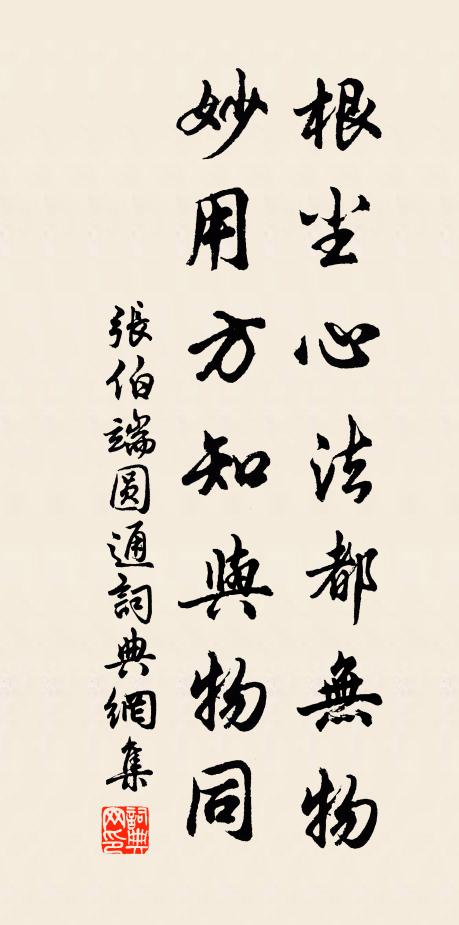 根尘心法都無物
妙用方知與物同
張伯端圓通詞典網集
詞典網印